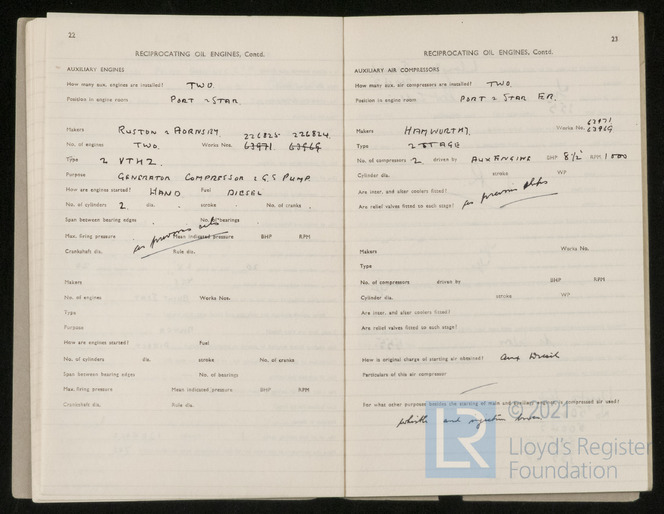 22
RECIPROCATING OIL ENGINES, Contd.
AUXILIARY ENGINES
How many aux. engines are installed? TWO.
Position in engine room PORT & STAR.
Makers RUSTON & HORNSBY. 226825 226824
No. of engines TWO. Works Nos. 63971 63969
Type 2 VTHZ.
Purpose GENERATOR COMPRESSOR & G.S PUMP
How are engines started? HAND Fuel DIESEL
No. of cylinders 2. dia. stroke No. of cranks
Span between bearing edges No. of bearings
Max. firing pressure as previous Mean indicated pressure BHP RPM
Crankshaft dia. Rule dia.
Makers
No. of engines Works Nos.
Type
Purpose
How are engines started? Fuel
No. of cylinders dia. stroke No. of cranks
Span between bearing edges No. of bearings
Max. firing pressure Mean indicated pressure BHP RPM
Crankshaft dia. Rule dia.
23
RECIPROCATING OIL ENGINES, Contd.
AUXILIARY AIR COMPRESSORS
How many aux. air compressors are installed? TWO.
Position in engine room PORT & STAR E.R.
63971
Makers HAMWORTHY. Works No. 63969
Type 2 STAGE
No. of compressors 2 driven by AUX ENGINE BHP 8½ RPM 1000
Cylinder dia. stroke WP
Are inter. and after coolers fitted?
Are relief valves fitted to each stage? as previous
Makers Works No.
Type
No. of compressors driven by BHP RPM
Cylinder dia. stroke WP
Are inter. and after coolers fitted?
Are relief valves fitted to each stage?
How is original charge of starting air obtained? Aux Diesel
Particulars of this air compressor
For what other purposes besides the starting of main and auxiliary engines is compressed air used?
whistle and
© 2021
LR
Lloyd's Register
Foundation